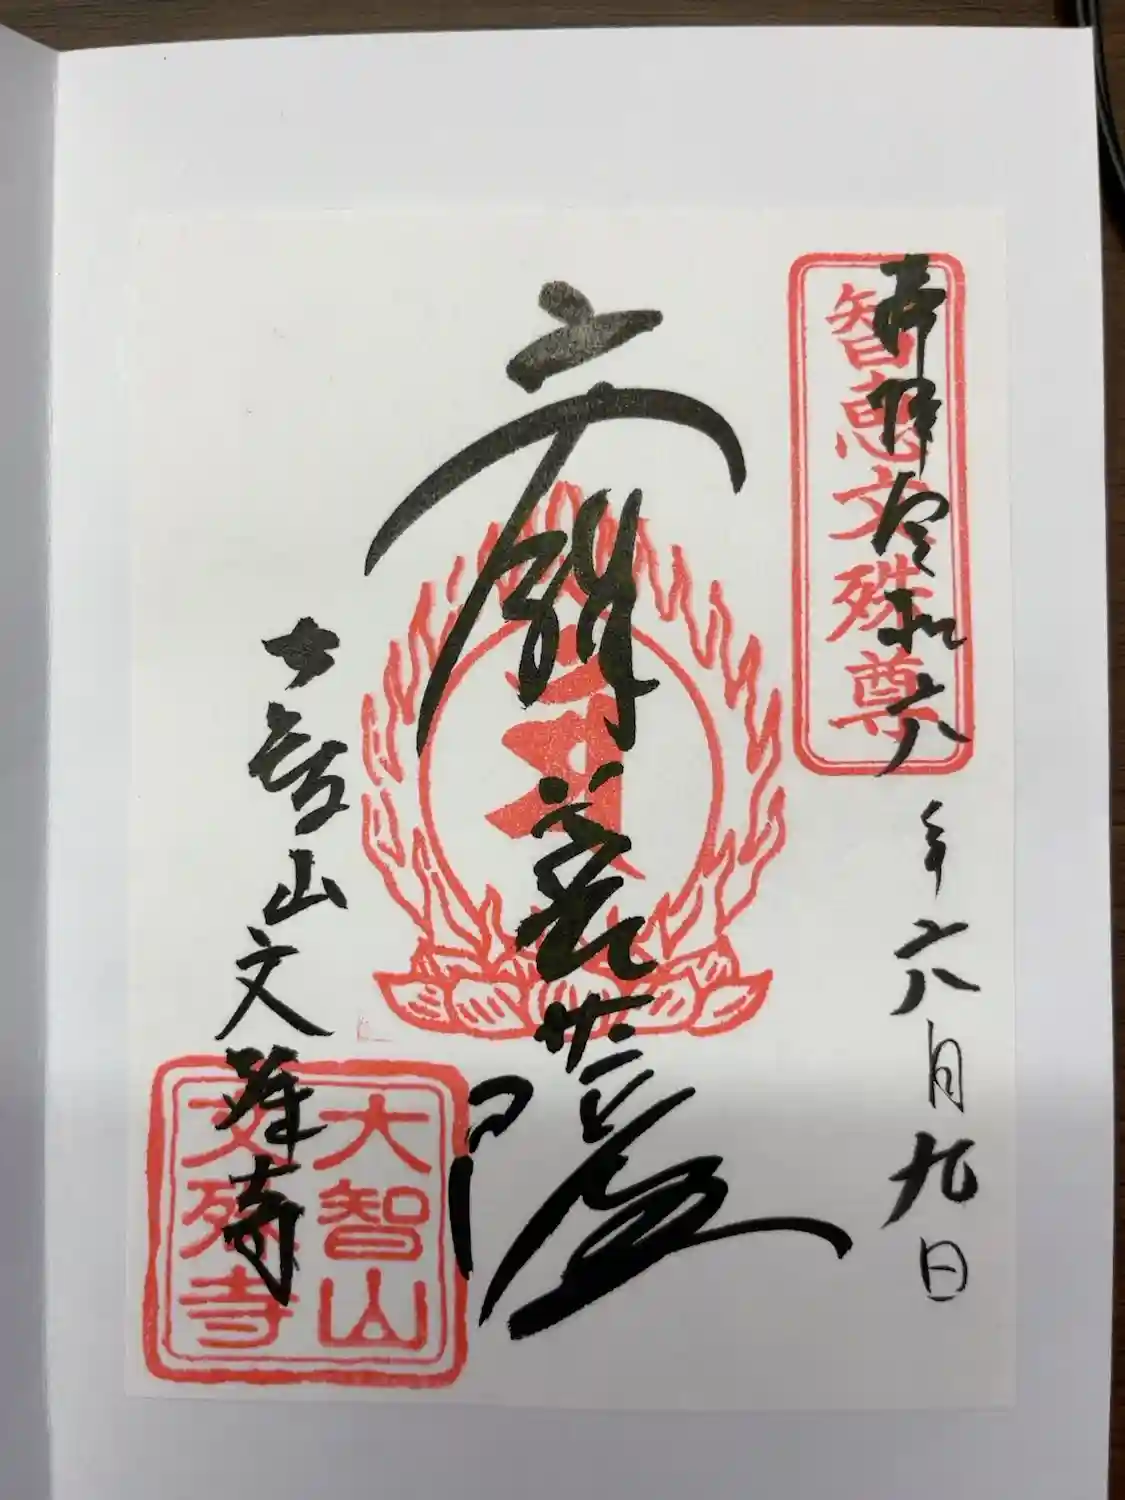 奉拝 令和六年六月九日
智恵文殊尊
大智山文殊寺
大智山
文殊寺